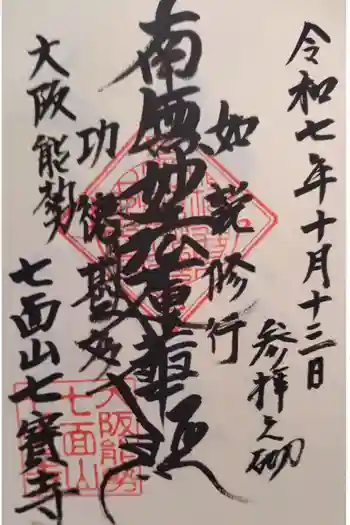 令和七年十月十三日
参拝之砌
如説修行
南無妙法蓮華経
功徳甚多
大阪能勢
七面山七寶寺
大阪能勢
七面山